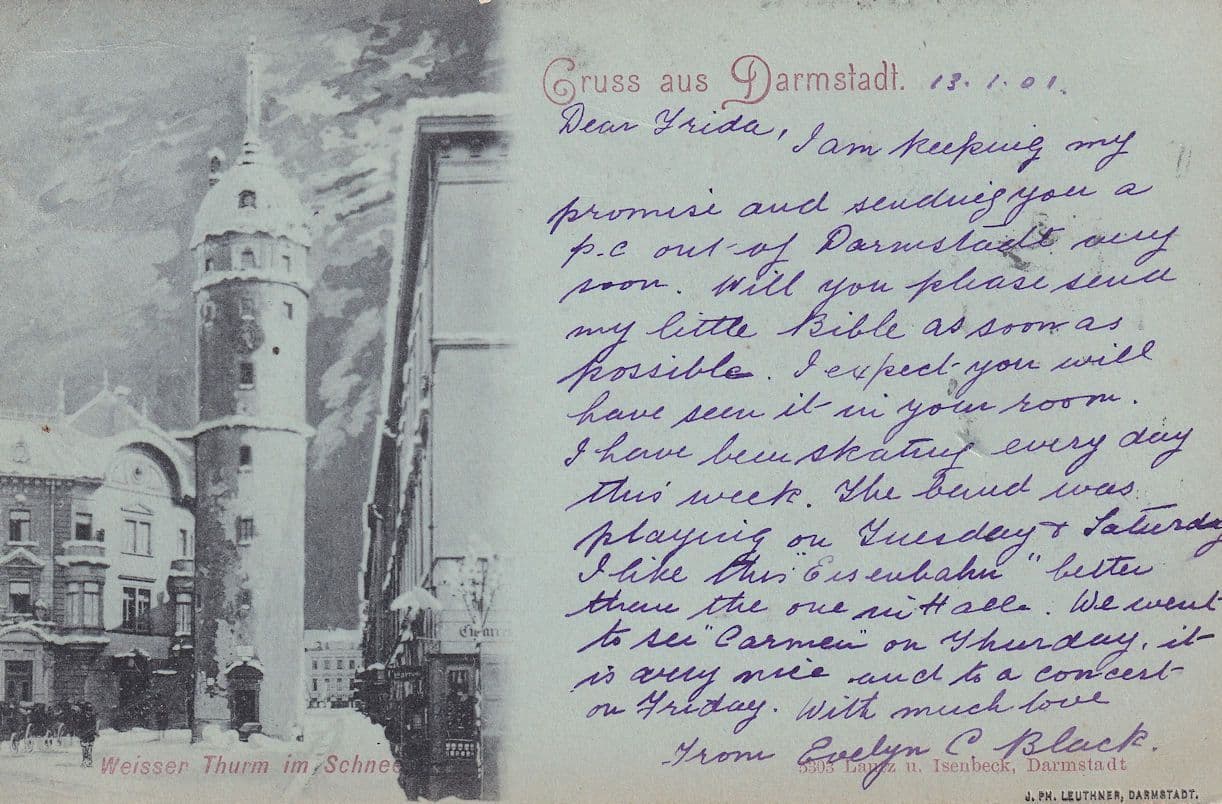 Gruss aus Darmstadt. 13.1.01.
Dear Frida, I am keeping my
promise and sending you a
p.c out of Darmstadt very
soon. Will you please send
my little Bible as soon as
possible. I expect you will
have seen it in your room.
I have been skating every day
this week. The band was
playing on Tuesday & Saturday
I like this "Eisenbahn" better
than the one in Halle. We went
to see "Carmen" on Thursday, it
is very nice and to a concert
on Friday. With much love
From Evelyn C. Black.
Weisser Thurm im Schnee
5303 Lautz u. Isenbeck, Darmstadt
J. PH. LEUTHNER, DARMSTADT.